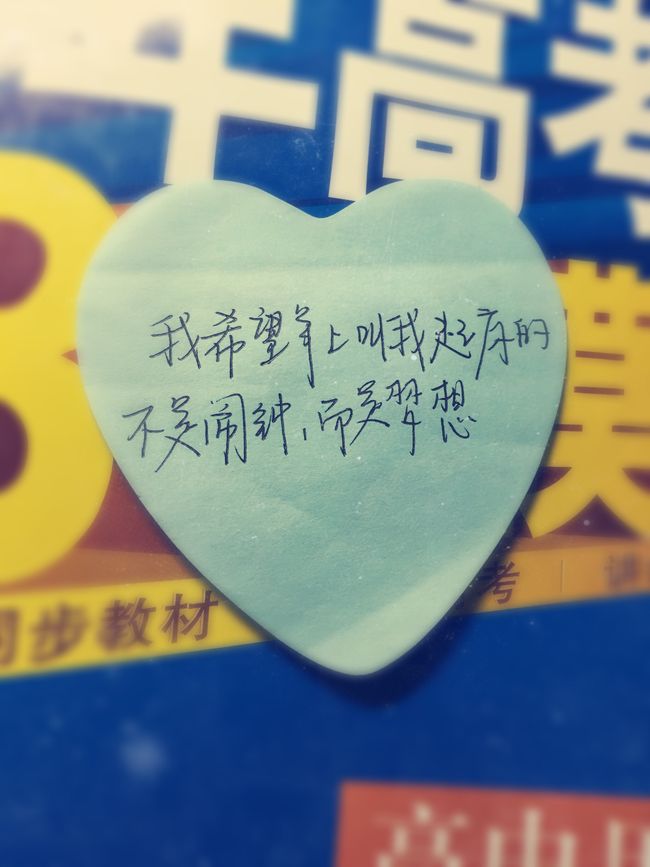 年高考
3 模
我希望早上叫我起床的
不是闹钟，而是梦想
同步教材 考 | 讲
高中